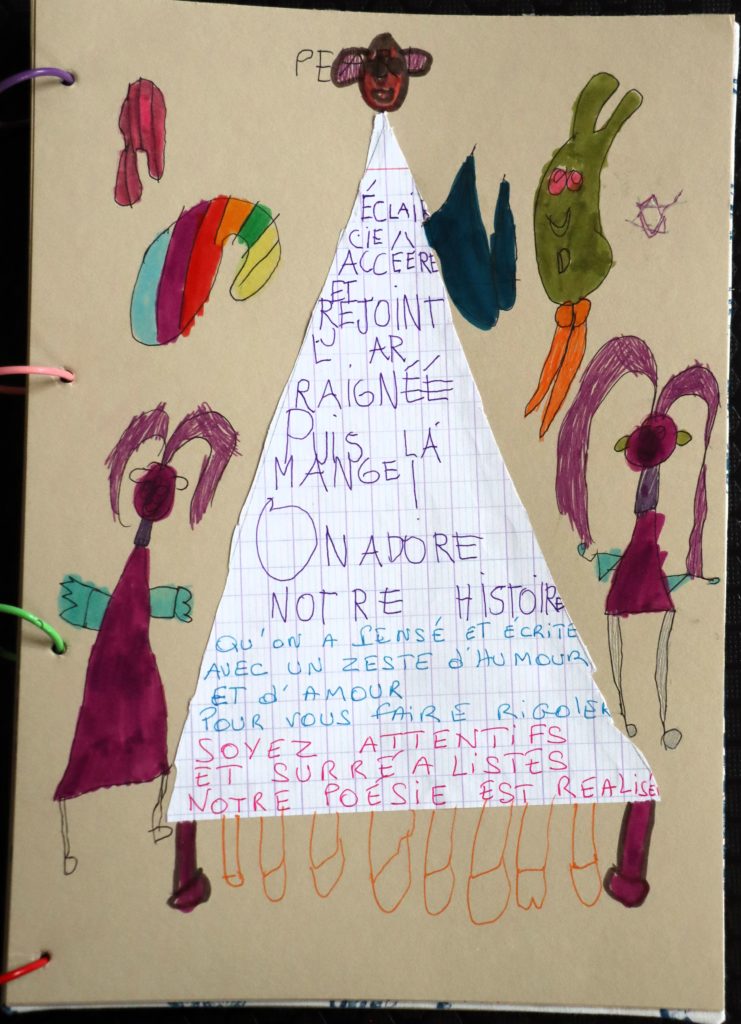 PEARL
ÉCLAIR
CIE
ACCÉÈRE
ET
REJOINT
L' AR
RAIGNÉÉ
PUIS LÀ
MANGE!
ON ADORE
NOTRE HISTOIRE
QU'ON A PENSÉ ET ÉCRITE
AVEC UN ZESTE d'HUMOUR
ET d'AMOUR
POUR VOUS FAIRE RIGOLER
SOYEZ ATTENTIFS
ET SURRÉALISTES
NOTRE POÉSIE EST REALISÉE